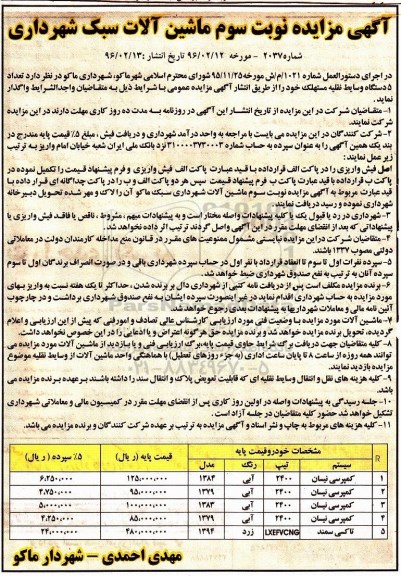 آگهی مزایده نوبت سوم ماشین آلات سبک شهرداری
شماره ۲۰۳۷ - مورخه ۹۶/۰۲/۱۲ تاریخ انتشار: ۹۶/۰۲/۱۳
در اجرای دستورالعمل شماره ۱۰۲۱/م/ش مورخه ۹۵/۱۱/۲۵ شورای محترم اسلامی شهر ماکو، شهرداری ماکو در نظر دارد تعداد
۵ دستگاه وسایط نقلیه مستهلک خود را از طریق انتشار آگهی مزایده عمومی با شرایط ذیل به متقاضیان واجدالشرایط واگذار
نماید.
۱- متقاضیان شرکت در این مزایده از تاریخ انتشار این آگهی در روزنامه به مدت ده روز کاری مهلت دارند در این مزایده
شرکت نمایند.
۲- شرکت کنندگان در این مزایده می بایست با مراجعه به واحد درآمد شهرداری و دریافت فیش، مبلغ ۵٪ قیمت پایه مندرج در
بند یک همین آگهی را به عنوان سپرده به حساب شماره ۳۱۰۰۰۰۳۷۳۰۰۰۳ نزد بانک ملی ایران شعبه خیابان امام واریز به ترتیب
زیر عمل نمایند:
اصل فیش واریزی را در پاکت الف قرار داده با قید عبارت پاکت الف فیش واریزی و فرم پیشنهاد قیمت را تکمیل نموده در
پاکت ب قرار داده با قید عبارت پاکت ب فرم پیشنهاد قیمت سپس هر دو پاکت الف و ب را در پاکت جداگانه ای قرار داده با
قید عبارت مربوط به آگهی مزایده نوبت سوم ماشین آلات شهرداری سبک ماکو آن را لاک و مهر شده تحویل دبیرخانه
شهرداری نموده و رسید دریافت نمایند.
۳- شهرداری در رد یا قبول یک یا کلیه پیشنهادات واصله مختار است و به پیشنهادات مبهم، مشروط، ناقص یا فاقد فیش واریزی یا
پیشنهاداتی که بعد از انقضای مهلت مقرر در این آگهی واصل گردند ترتیب اثر داده نخواهد شد.
۴- متقاضیان شرکت در این مزایده نبایستی مشمول ممنوعیت های مقرر در قانون منع مداخله کارمندان دولت در معاملاتی
دولتی مصوب ۱۳۳۷ باشند.
۵- سپرده نفرات اول تا سوم تا انعقاد قرارداد با نفر اول در حساب سپرده شهرداری باقی و در صورت انصراف برندگان اول تا سوم
سپرده آنان به ترتیب به نفع صندوق شهرداری ضبط خواهد شد.
۶- برنده مزایده مکلف است پس از دریافت نامه کتبی از شهرداری دال بر برنده شدن، حداکثر تا یک هفته نسبت به واریز بهای
مورد مزایده به حساب شهرداری اقدام نماید در غیر اینصورت سپرده ایشان به نفع صندوق شهرداری برداشت و در چارچوب
آئین نامه مالی و معاملات شهرداریها به پیشنهادات بعدی رجوع خواهد شد.
۷- ماشین آلات مورد مزایده با وضعیت فنی مورد ارزیابی کارشناس مالی تصادف و امورفنی که پیش از این ارزیابی و اعلام
گردیده، تحویل برنده مزایده خواهد شد و برنده مزایده حق هرگونه اعتراض و یا ادعایی را در این خصوص نخواهد داشت.
۸- کلیه متقاضیان جهت دریافت برگ شرایط حاوی قیمت پایه، برگ ارزیابی فنی و یا بازدید از ماشین آلات مورد مزایده می
توانند همه روزه از ساعت ۸ تا پایان ساعت اداری (به جزء روزهای تعطیل) با هماهنگی واحد ماشین آلات از وسایط نقلیه موضوع
مزایده بازدید نمایند.
۹- کلیه هزینه های نقل و انتقال وسایط نقلیه ای که قابلیت تعویض پلاک و انتقال سند را داشته باشند بر عهده برنده مزایده می
باشد.
۱۰- جلسه رسیدگی به پیشنهادات واصله در اولین روز کاری پس از انقضای مهلت مقرر در کمیسیون مالی و معاملاتی شهرداری
تشکیل خواهد شد حضور کلیه متقاضیان در جلسه آزاد است.
۱۱- کلیه هزینه های مربوط به چاپ و نشر اسناد و آگهی مزایده به ترتیب بر عهده شرکت کنندگان و برنده مزایده می باشد.
R مشخصات خودرو قیمت پایه قیمت پایه (ریال) ۵٪ سپرده (ریال)
سیستم تیپ رنگ مدل
۱ کمپرسی نیسان ۲۴۰۰ آبی ۱۳۸۴ ۱۲۵،۰۰۰،۰۰۰ ۶،۲۵۰،۰۰۰
۲ کمپرسی نیسان ۲۴۰۰ آبی ۱۳۷۹ ۹۵،۰۰۰،۰۰۰ ۴،۷۵۰،۰۰۰
۳ کمپرسی نیسان ۲۴۰۰ آبی ۱۳۸۳ ۱۰۰،۰۰۰،۰۰۰ ۵،۰۰۰،۰۰۰
۴ کمپرسی نیسان ۲۴۰۰ آبی ۱۳۷۹ ۸۵،۰۰۰،۰۰۰ ۴،۲۵۰،۰۰۰
۵ تاکسی سمند LXEF7CNG زرد ۱۳۹۴ ۴۸۰،۰۰۰،۰۰۰ ۲۴،۰۰۰،۰۰۰
مهدی احمدی – شهردار ماکو